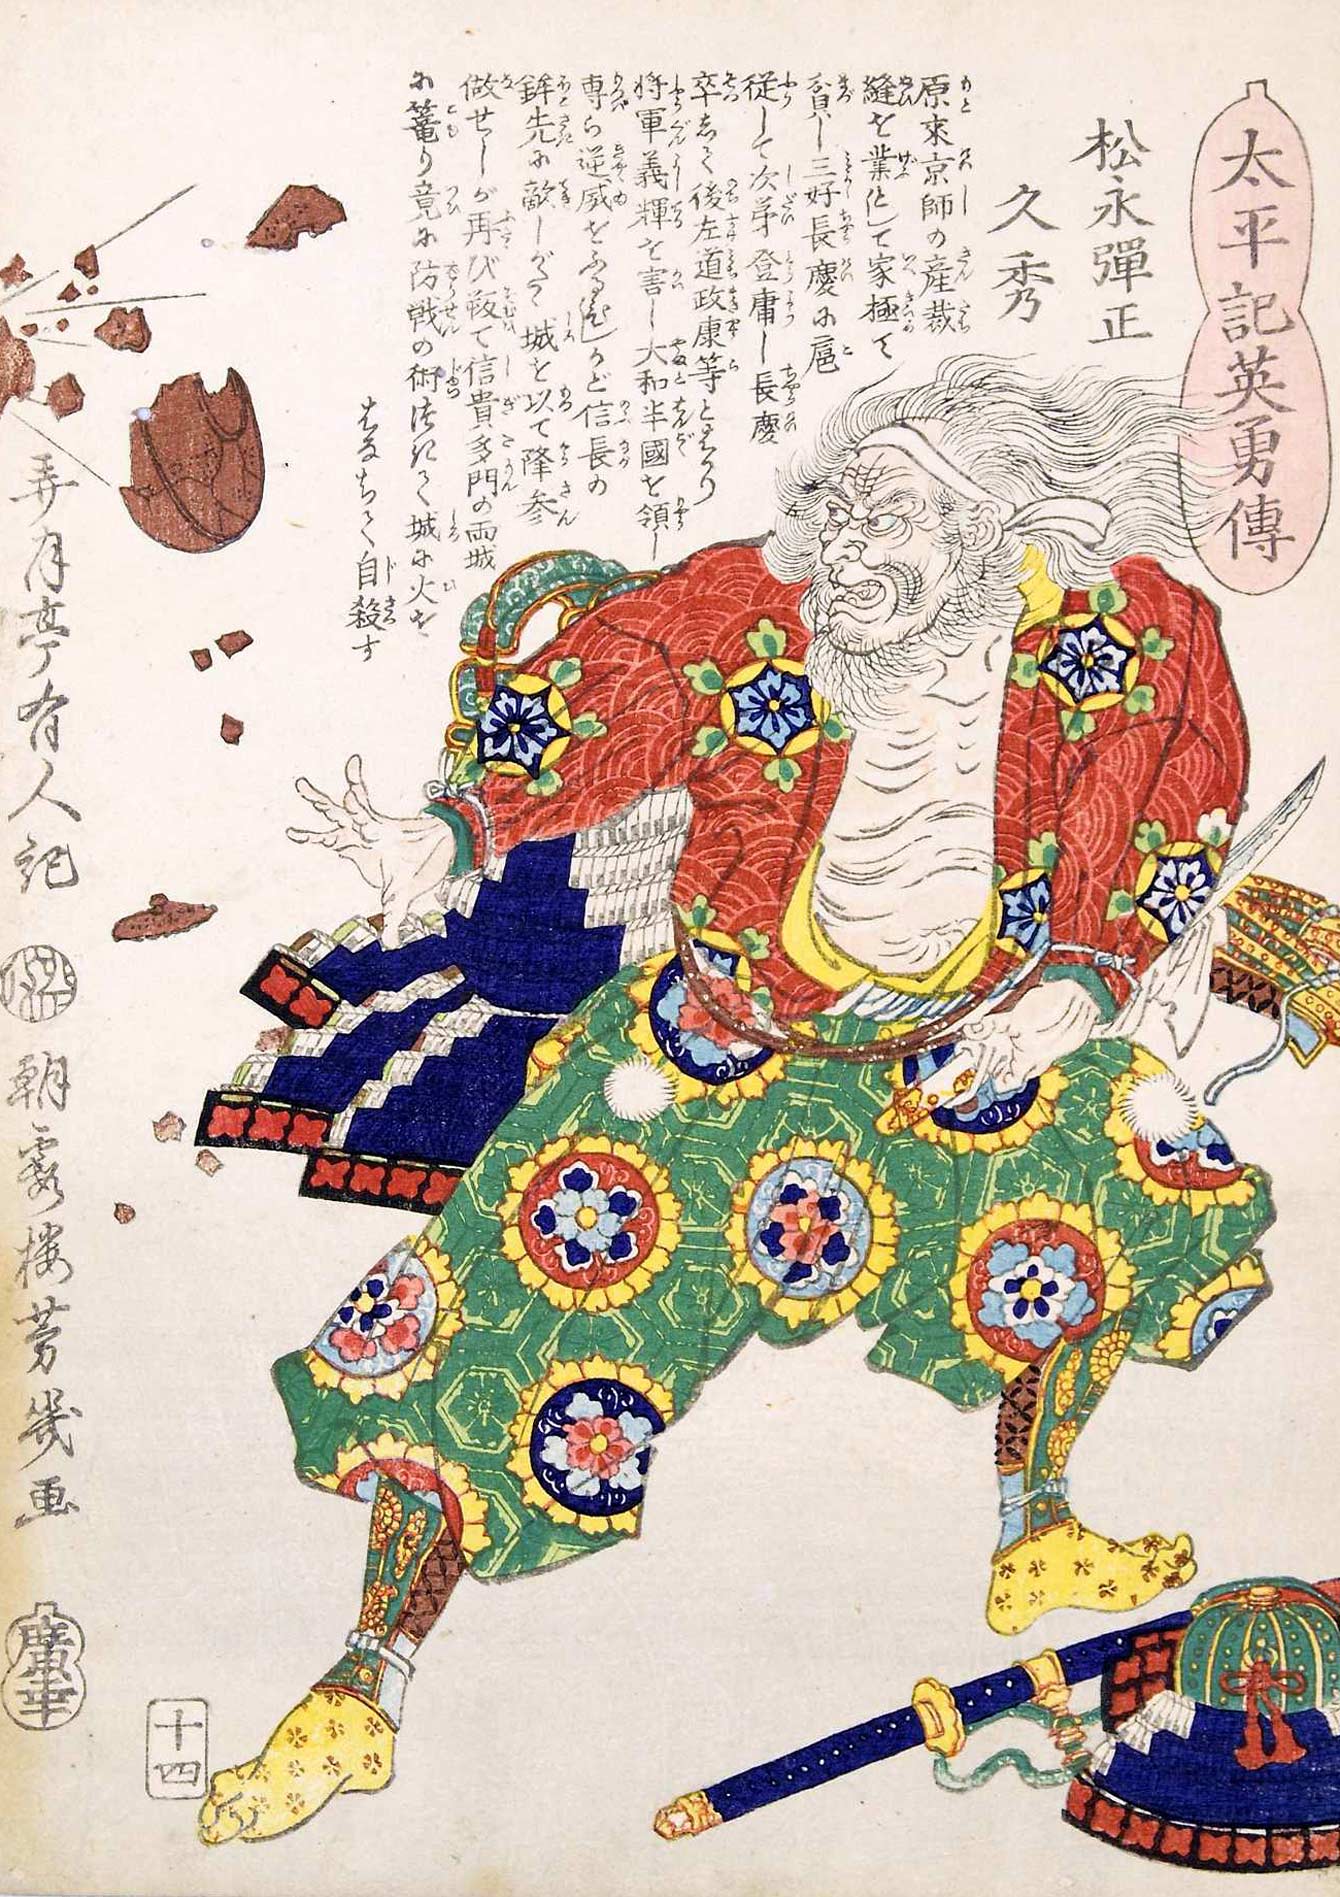 太平記英勇傳
松永彈正
久秀
原來京師の産裁
縫を業として家極て
貧し三好長慶に扈
従して次第登庸し長慶
卒して後左道政康等と
将軍義輝を害し大和半國を領し
専ら逆威をふるひしかど信長の
鉾先に敵しがたく城を以て降参
做せしが再び叛て信貴多門の両城
に篭り竟に防戦の術つきて城に火を
はなちて自殺す
弄月亭有人記
朝霞楼芳幾画
廣幸
十四